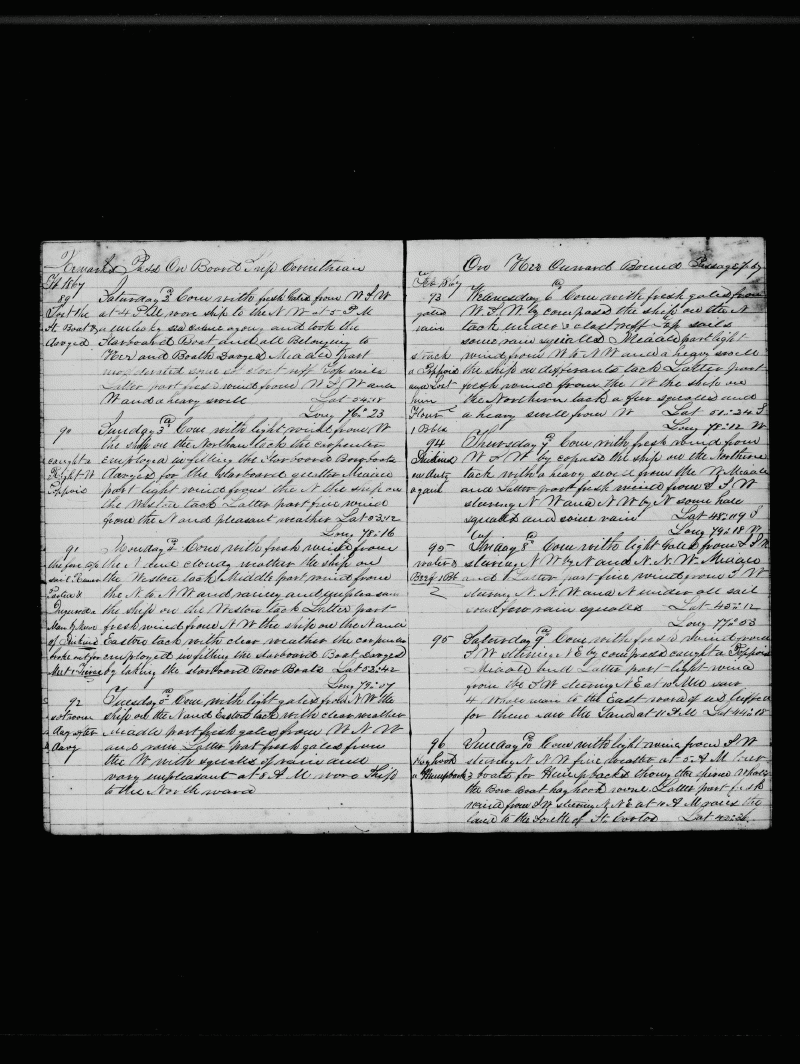 Remarks Pass On Board Ship Corinthian
Feb 1867
89 Saturday 2 Com with fresh Gales from W S W
Lost the at 4 P M wore ship to the N W at 5 P M
St. Boat & a sea came and took the
davges Starboard Boat and all Belonging to
Her and Boath Davges Meadle part
moderated some close reff Top sails
Latter part fresh wind from W S W and
W and a heavy swell Lat 54:18
Long 76:23
90 Sunday 3 Com with light wind from W
the ship on the Northan tack the carpenter
caught a employed in fitting the Starboard Bow boats
Right W davges for the Starboard quarter Meadle
Popois part light winds from the N the ship on
the Westan tack Latter part fine wind
from the N and pleasant weather Lat 53:12
Long 78:16
91 Monday 4 Com with fresh wind from
the N and cloudy weather the ship on
the Westan tack Middle part wind from
the N to N W and rainey and unpleasant
the ship on the Westan tack Latter part
fresh wind from N W the ship on the N and
of Eastan tack with clear weather the carpenter
broke out for employed in fitting the starboard Boat Davges
Meet by taking the starboard Bow Boats Lat 52:42
Long 79:07
92 Tuesday 5 Com with light gales from N W the
ship on the N and Eastan tack with clear weather
day after Meadle part fresh gales from W N W
davy and rain Latter part fresh gales from
the W with squales of rain and
vary unpleasant at 8 A M wore Ship
to the North ward
On Her Outward Bound Passage
Feb
93 Wednesday 6 Com with fresh gales from
gales W S W by compass the ship on the N
rain tack under close reff Top sails
some rain squalls Meadle part light
struck wind from W to N W and a heavy swell
a Popois the ship on differants tack Latter part
and Lost fresh wind from the W the ship on
him the Northern tack a few squales and
Flour a heavy swell from W Lat 51:24 S
1 Bbls Long 78:12 W
94 Thursday 7 Com with fresh wind from
W S W by copass the ship on the Northern
on duty tack with a heavy swell from the W Meadle
again and Latter part fresh wind from S S W
stering N W and N W by N some hale
squales and some rain Lat 48:09 S
Long 79:18 W
95 Friday 8 Com with light Gales from S S W
water & stering N W by N and N. N. W Meadle
Beef 1 Bbl and Latter part fine wind from S W
2 stering N. N W and N under all sail
some few rain squales Lat 45:12
Long 77:03
95 Saturday 9 Com with fresh wind from
S W stering N E by compass caught a Popois
Meadle and Latter part light wind
from the S W stering N E at 10 A M saw
4 Whale men to the East ward of us
for them saw the Land at 11 A M Lat 44:18
96 Sunday 10 Com with light wind from S W
hook stering N N W fine weather at 5 A M
a Humpback 3 boats for Humpbacks
the Bow Boat hay hook one Latter part fresh
wind from S W stering N N E at 11 A M
land to the South of St. Carlos Lat 42:36